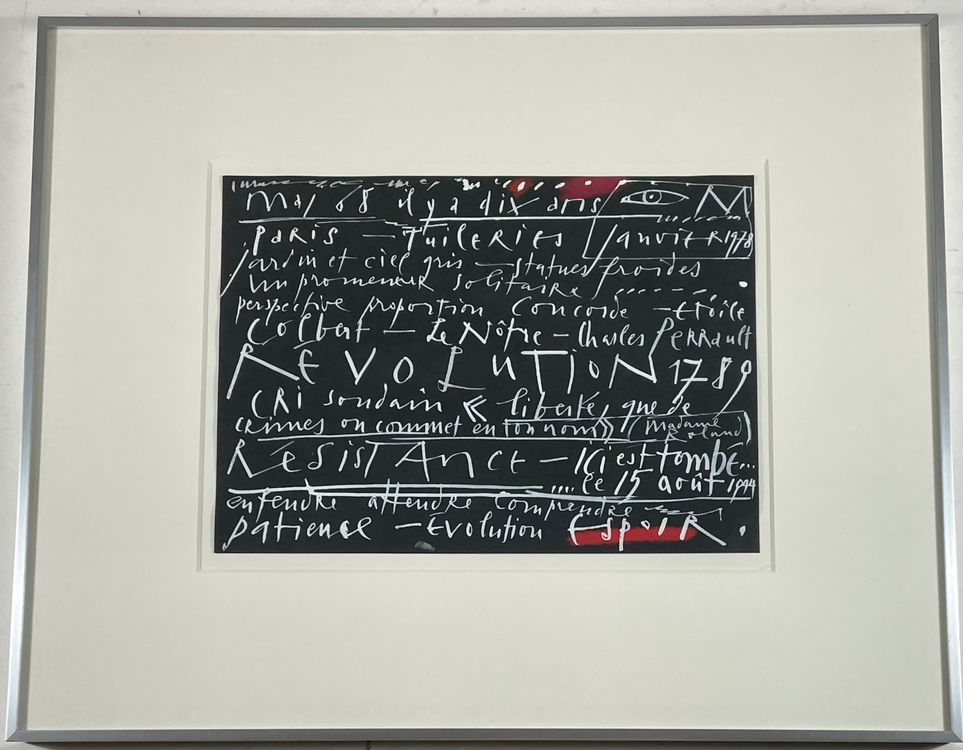 May 68 il y a dix ans
M
Paris — Tuileries janvier 1978
jardin et ciel gris — statues froides
un promeneur solitaire
perspective proportion Concorde — Etoile
Colbert — Le Nôtre — Charles Perrault
REVOLUTION 1789
CRi soudain « liberté, que de
crimes on commet en ton nom » (Madame Roland)
RésisTAnce — ici est tombé...
.... le 15 août 1944
entendre attendre comprendre
patience — Evolution EspoiR.